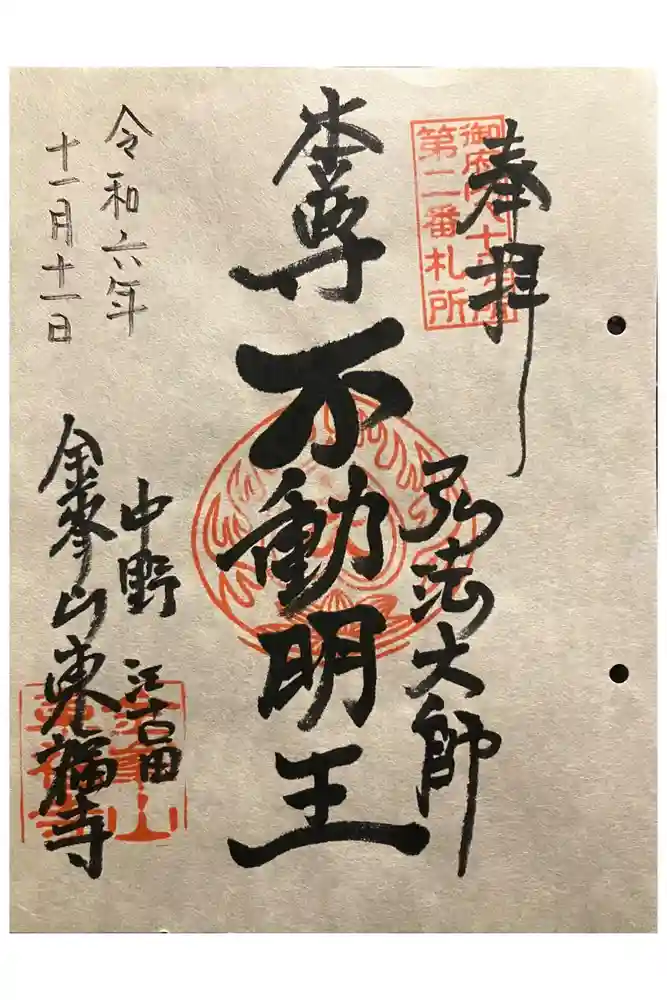 奉拝
御府内八十八ヶ所
第二番札所
弘法大師
本尊
不動明王
令和六年
十一月十一日
中野
江古田
金峯山東福寺